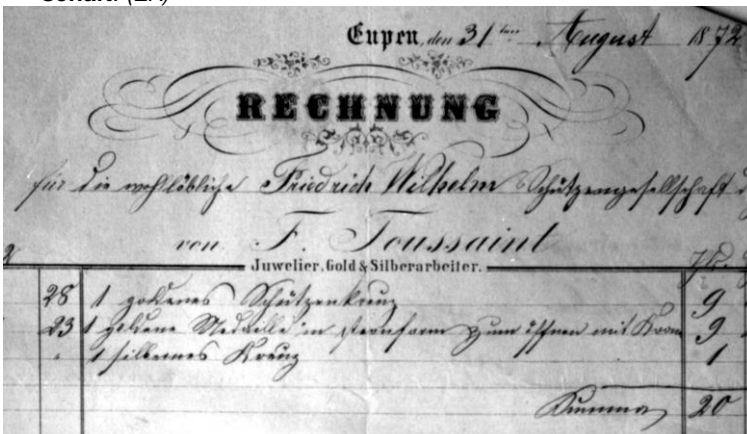 Eupen, den 31ten August 1872
RECHNUNG
für die wohllöbliche Friedrich Wilhelm Schützengesellschaft
von F. Toussaint
Juwelier, Gold & Silberarbeiter.
28 1 goldenes Schützenkreuz 9
23 1 goldene Medaille in sternform zum öffnen mit Krone 9
" 1 silbernes Kreuz 1
Summa 20